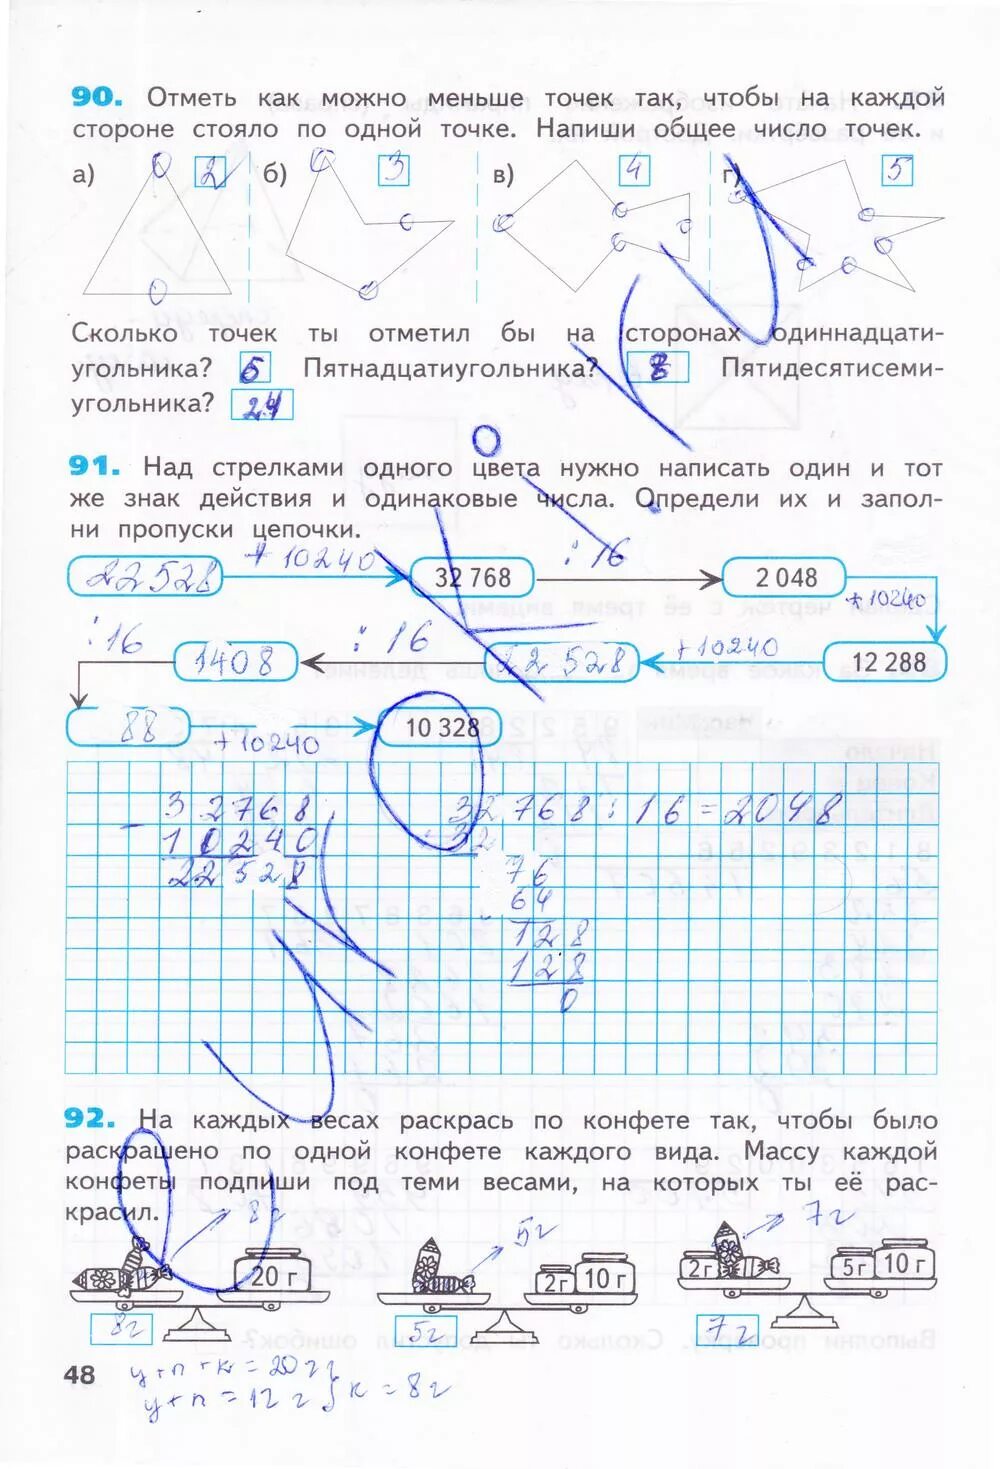 90. Отметь как можно меньше точек так, чтобы на каждой
стороне стояло по одной точке. Напиши общее число точек.
а) 2 б) 3 в) 4 г) 5
Сколько точек ты отметил бы на сторонах одиннадцати-
угольника? 6 Пятнадцатиугольника? 8 Пятидесятисеми-
угольника?
91. Над стрелками одного цвета нужно написать один и тот
же знак действия и одинаковые числа. Определи их и запол-
ни пропуски цепочки.
22528 + 10240 32 768 : 16 2 048
+10240
: 16 1408 : 16 22 528 +10240 12 288
88 +10240 10 328
32768 32 768 : 16 = 2048
- 10240 - 32
22528 76
64
128
128
0
92. На каждых весах раскрась по конфете так, чтобы было
раскрашено по одной конфете каждого вида. Массу каждой
конфеты подпиши под теми весами, на которых ты её рас-
красил.
8г 5г 7г
20 г 2г 10 г 2г 5г 10 г
8г 5г 7г
48
ч+п+к = 20 г
ч+п = 12 г } к = 8 г